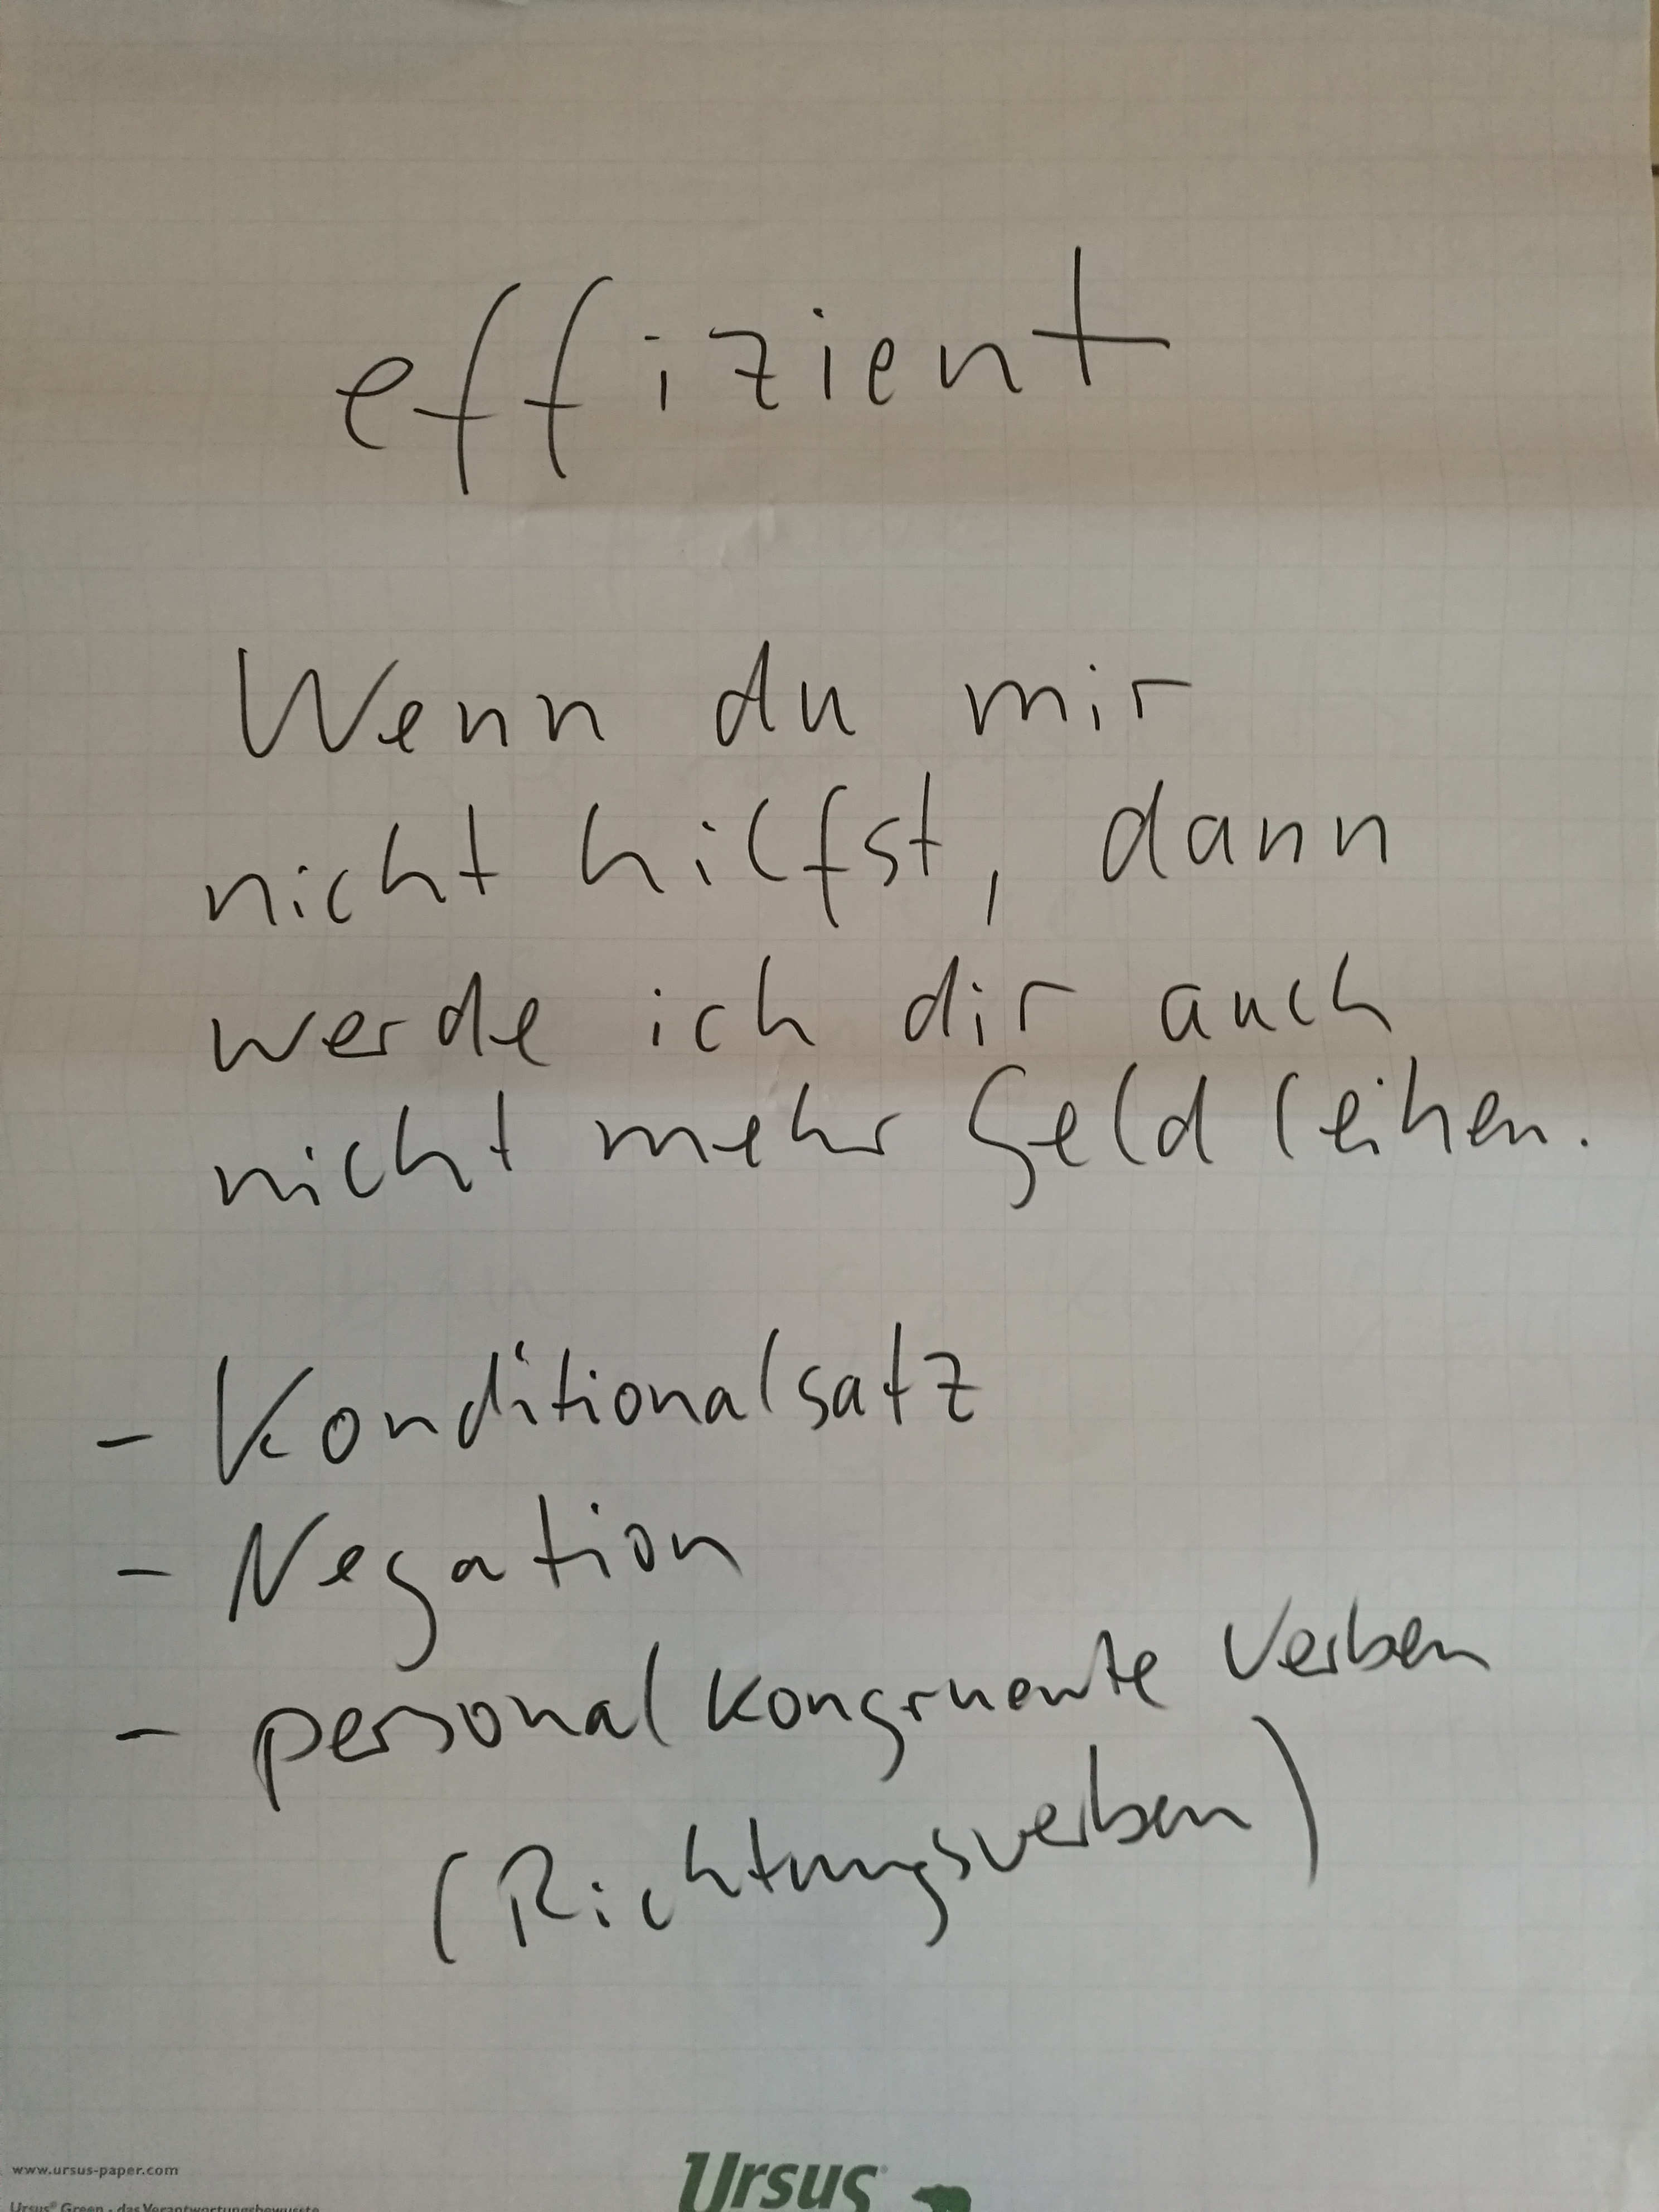 effizient
Wenn du mir
nicht hilfst, dann
werde ich dir auch
nicht mehr Geld leihen.
- Konditionalsatz
- Negation
- personal kongruente Verben
(Richtungsverben)
www.ursus-paper.com
Ursus®
Ursus® Green - das Verantwortungsbewusste